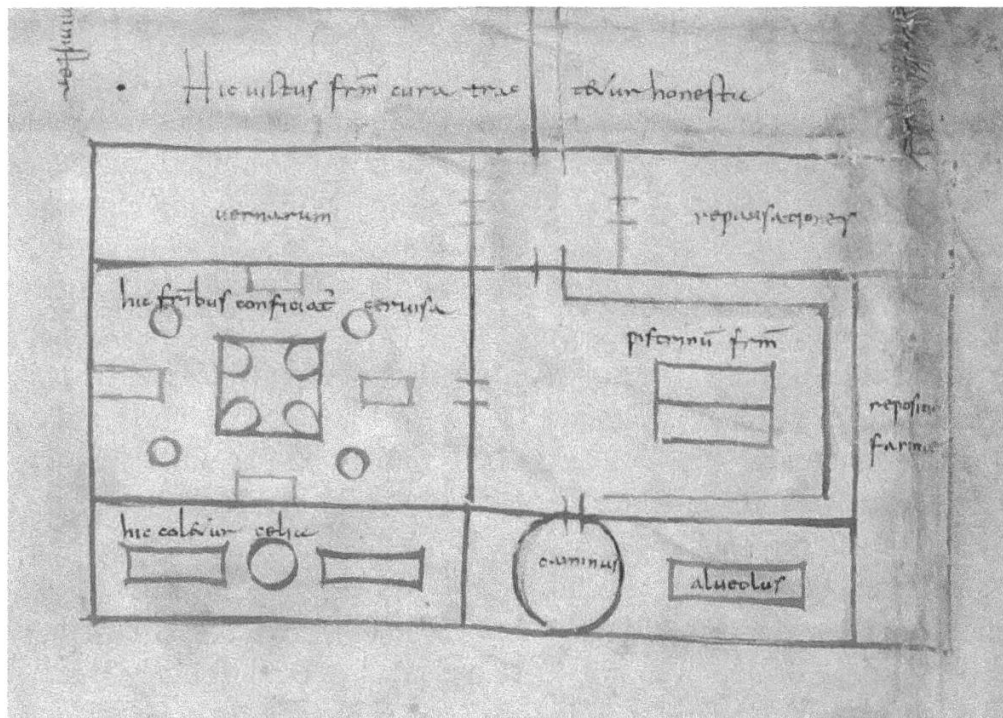 Hic uictus frm̄ cura trac tetur honeste
uernarum
repausationes
hic frībus conficiat̄ ceruisa
pistrinū frm̄
farinae
hic coletur celia
caminus
alueolus